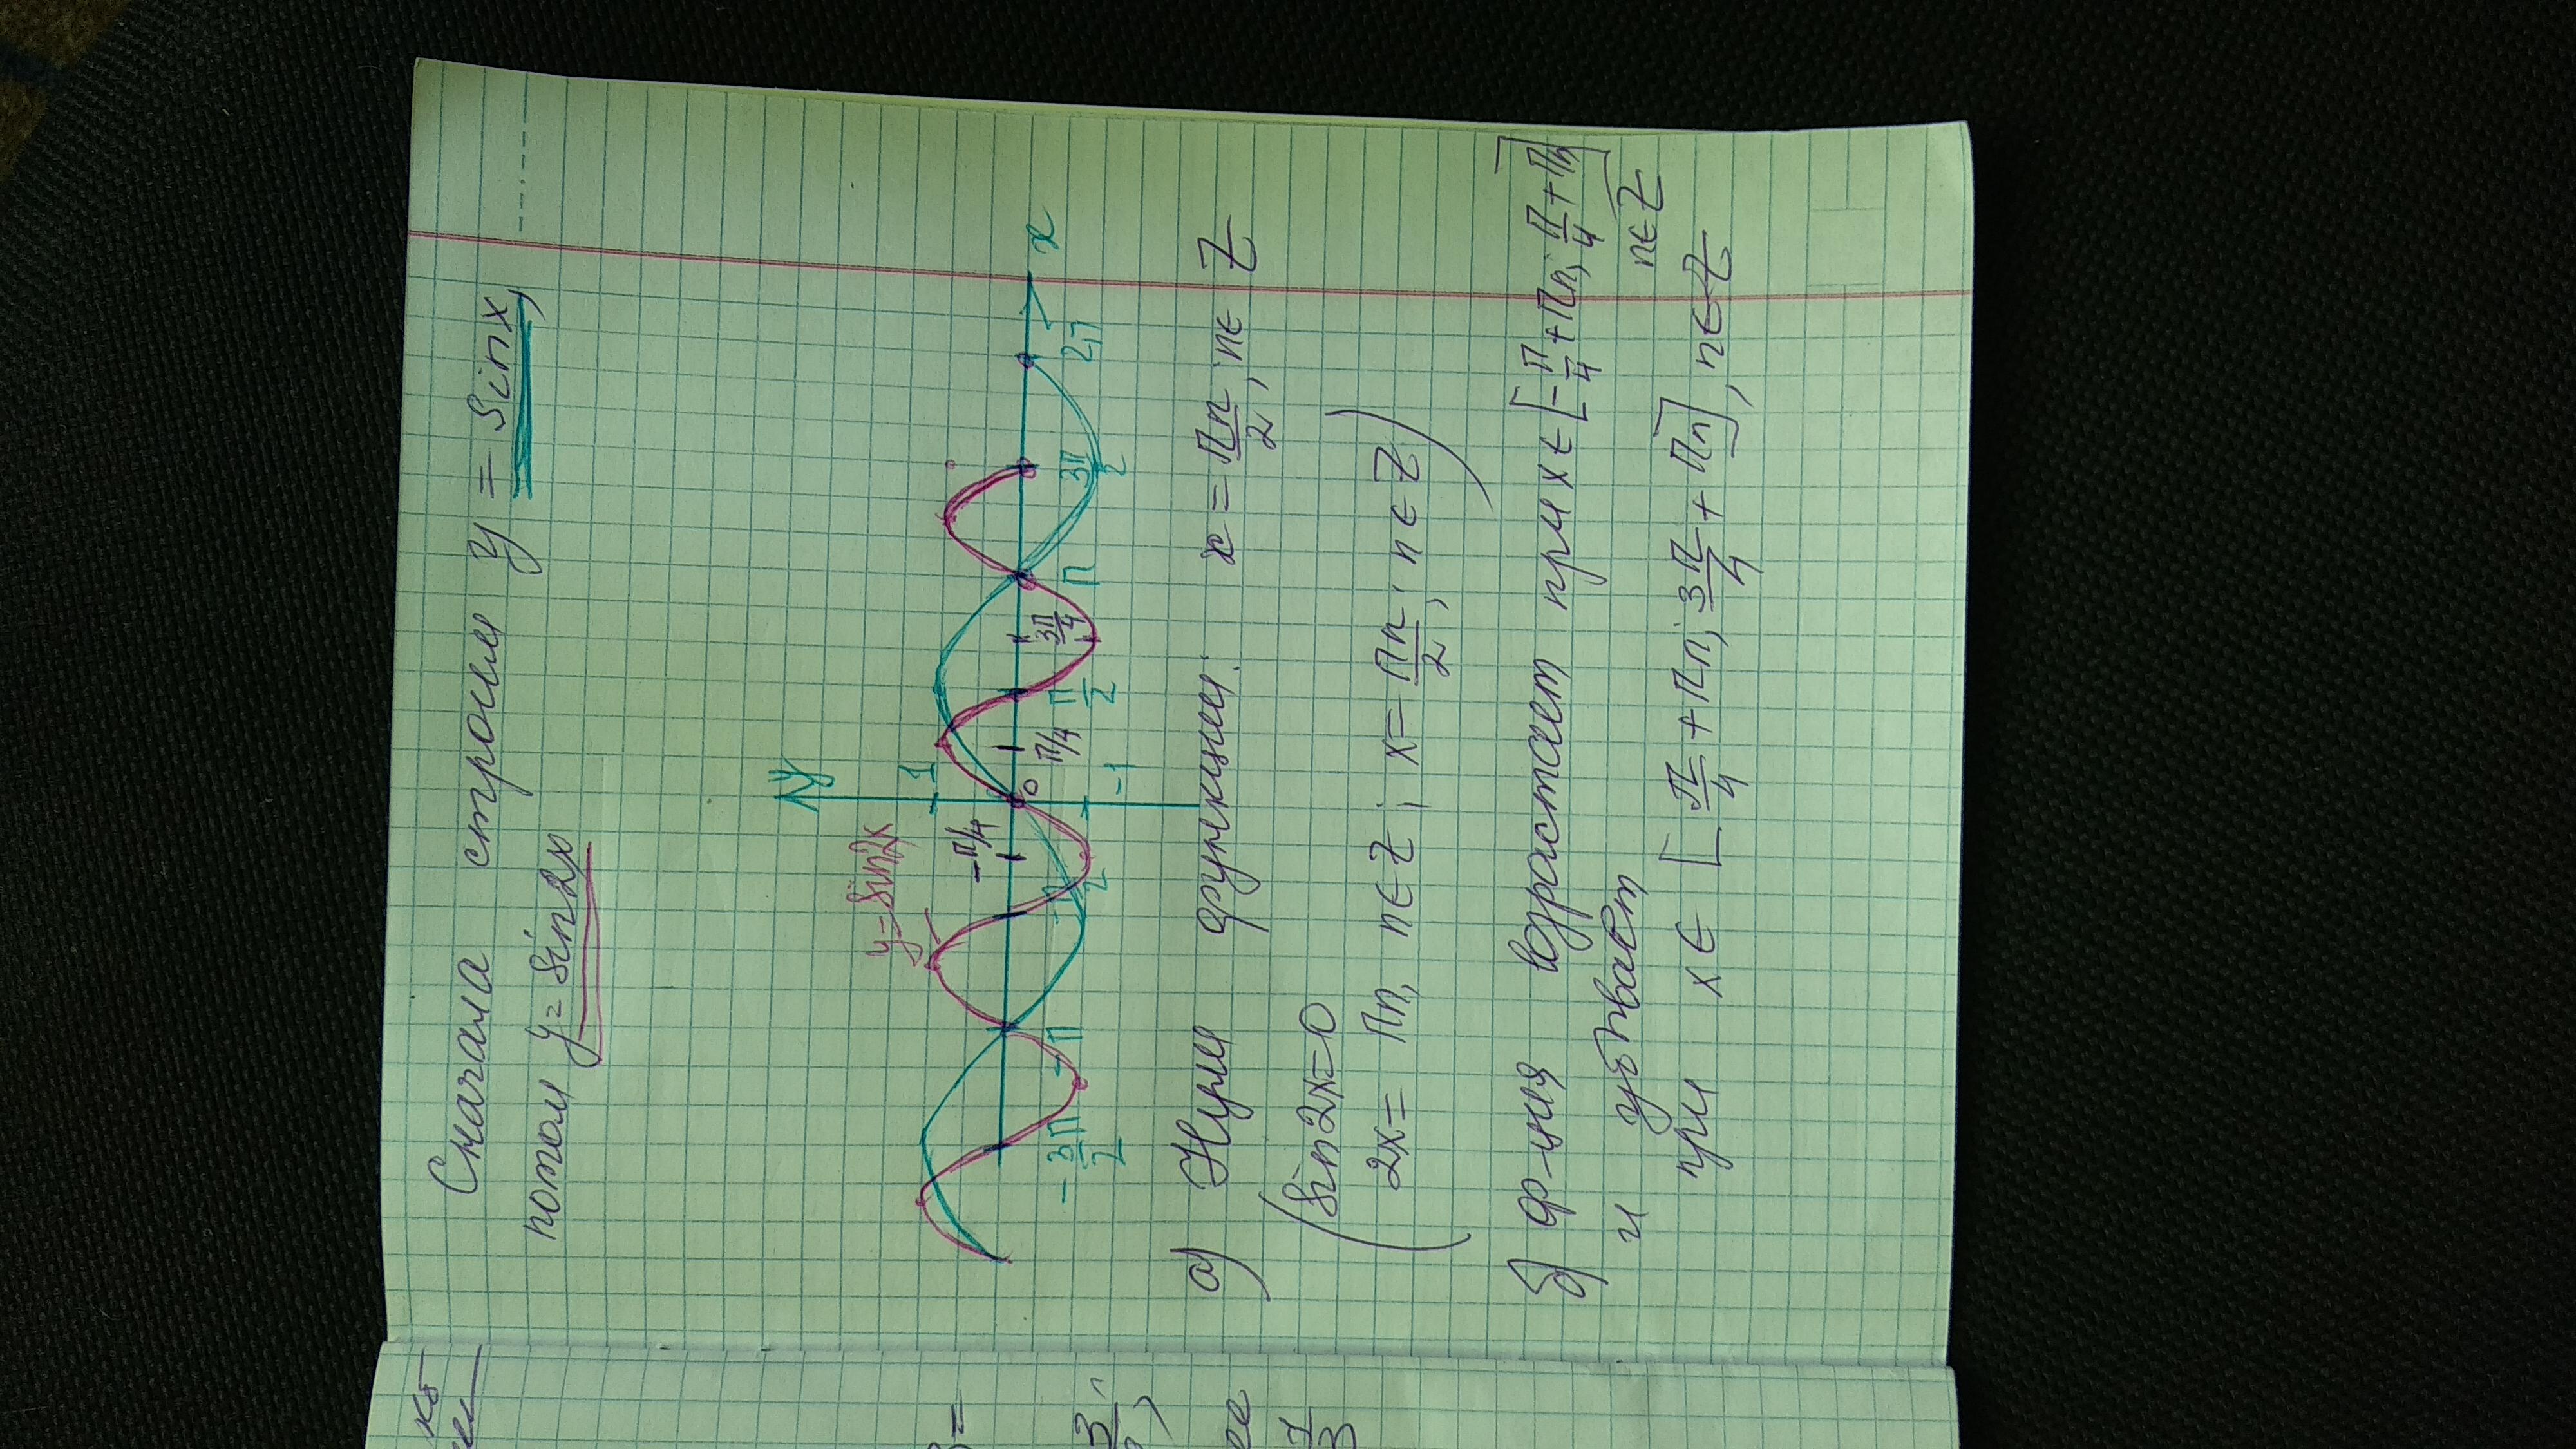 Сначала строим y = sinx,
потом y = sin2x
y
y = sin2x
1
-π/4
x
0
π/4
π/2
3π/4
π
3π/2
2π
-1
-π/2
-π
-3π/2
а) Нули функции: x = πn/2, n∈Z
(sin2x=0
2x = πn, n∈Z; x = πn/2, n∈Z)
б) ф-ция возрастает при x∈[-π/4+πn; π/4+πn]
n∈Z
и убывает
при x∈[π/4+πn; 3π/4+πn], n∈Z